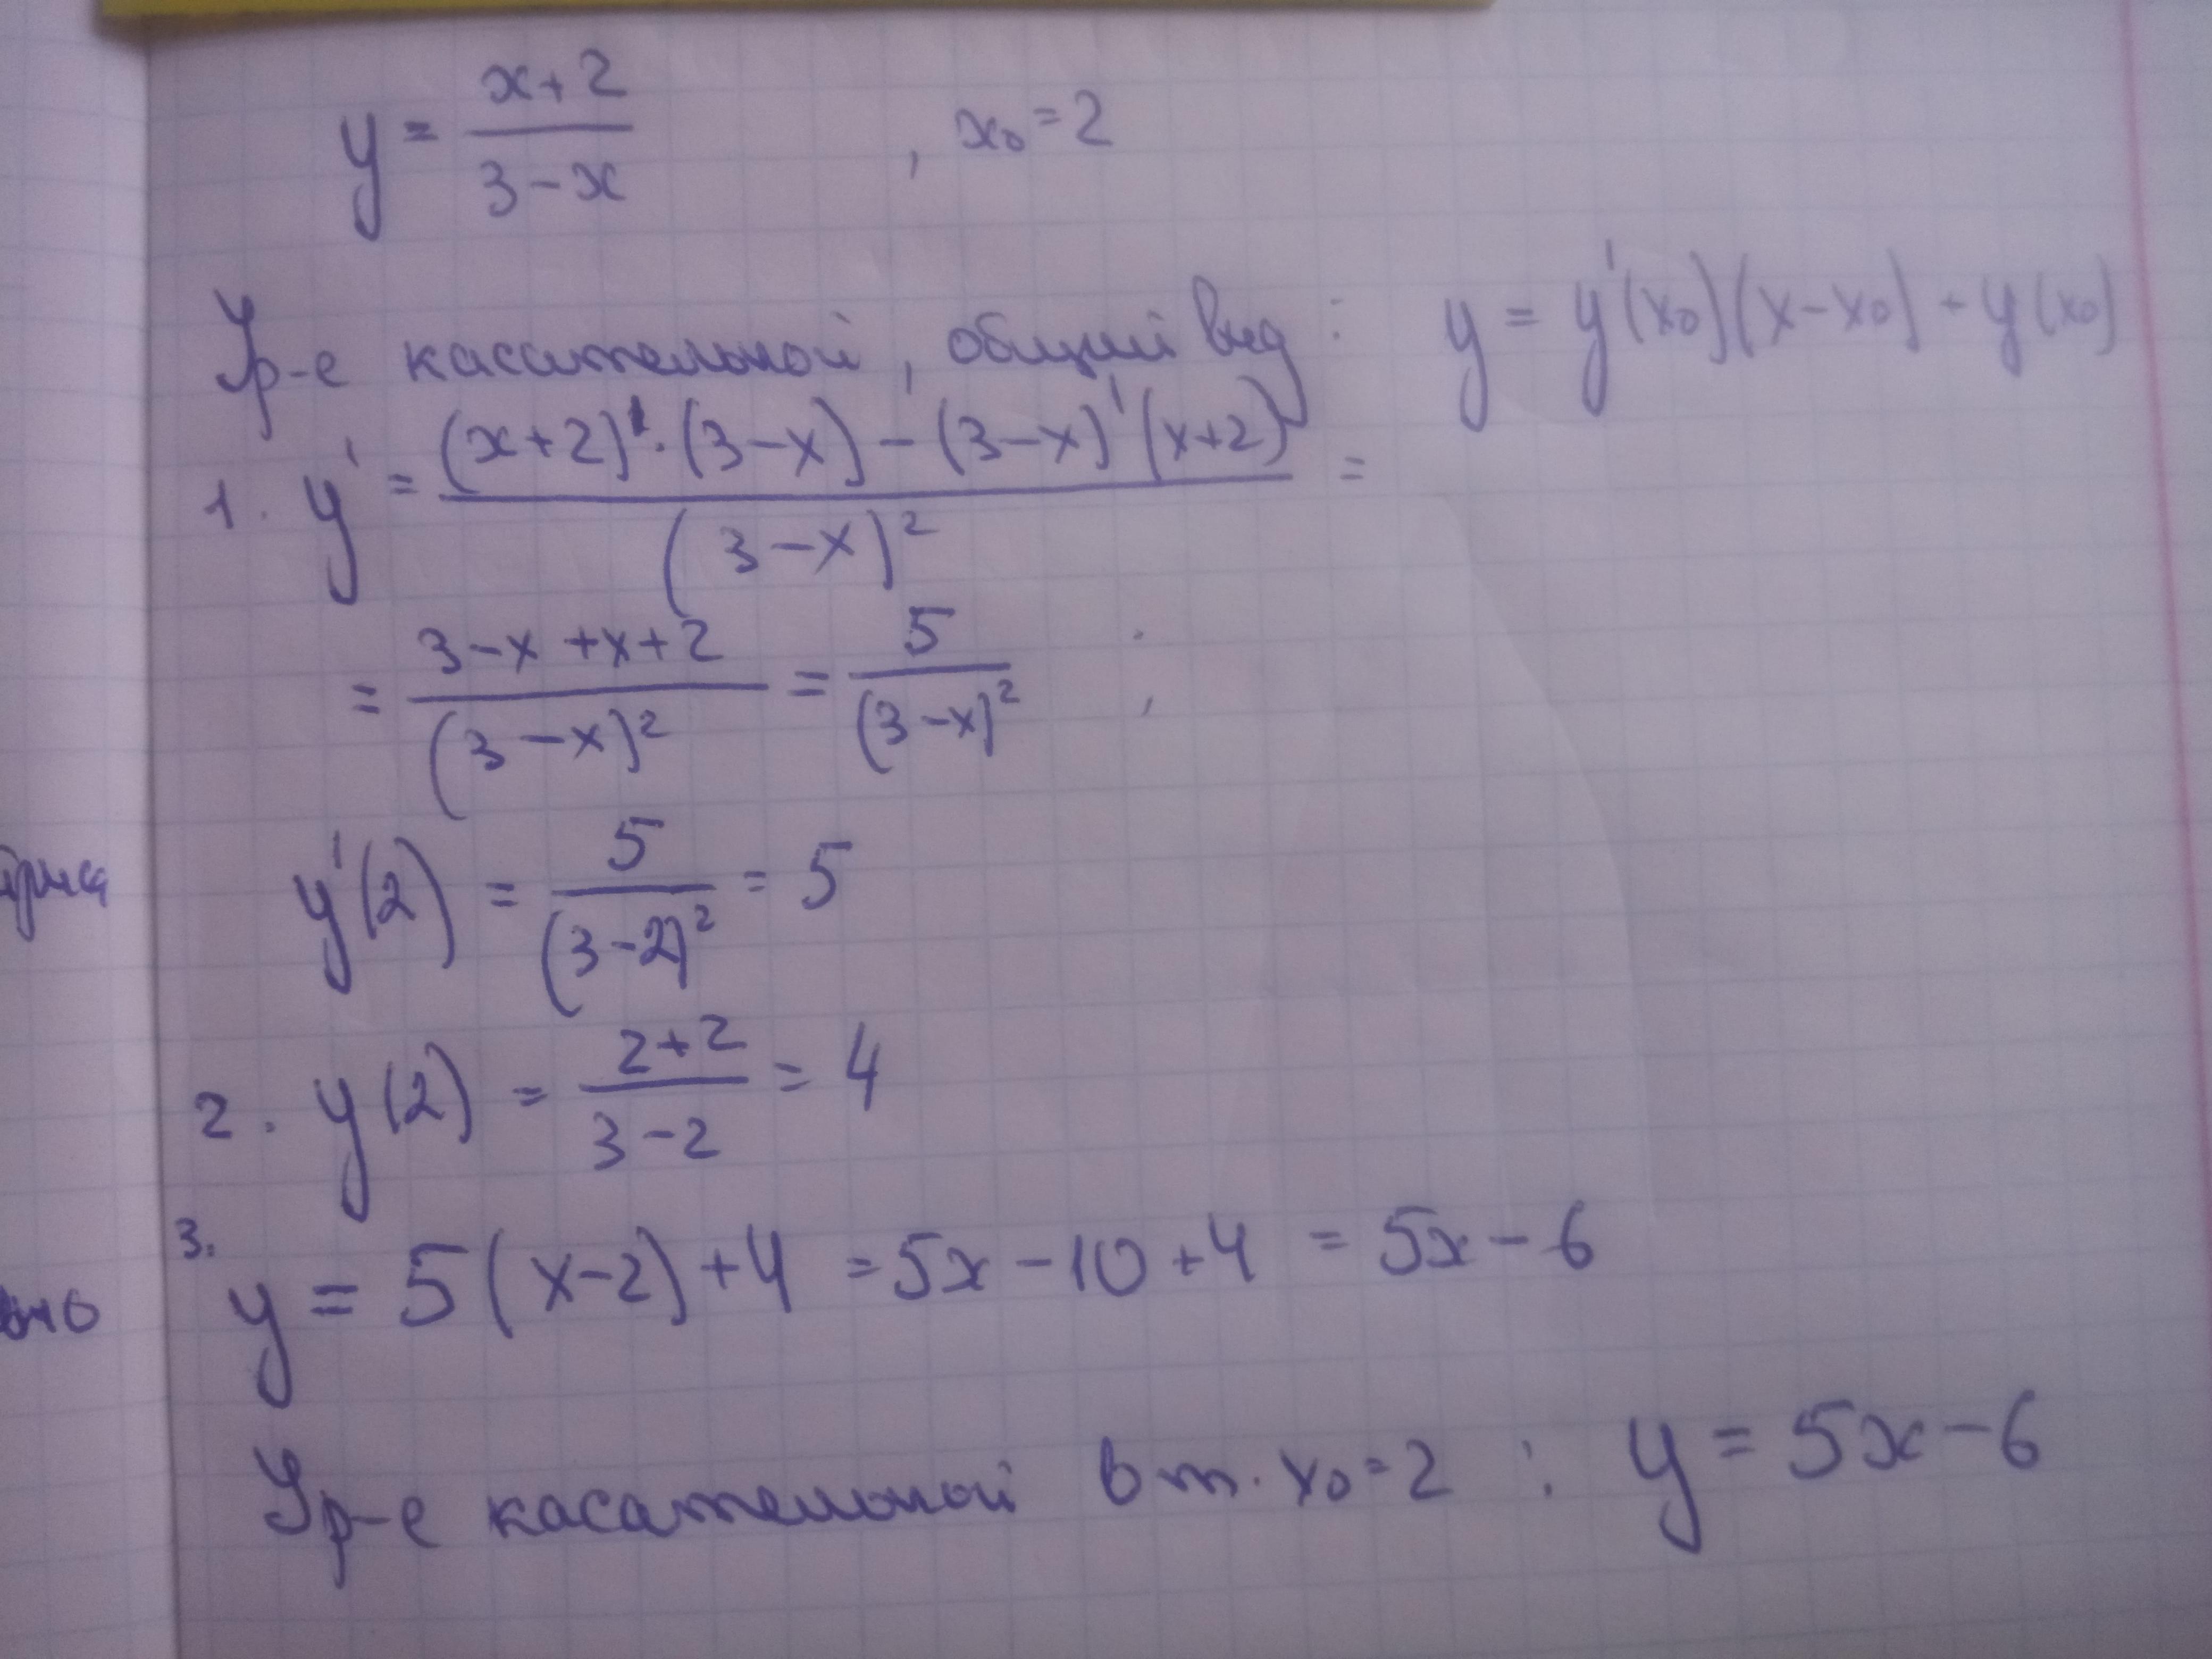 y = (x+2)/(3-x) , x₀ = 2
Ур-е касательной, общий вид : y = y'(x₀)(x-x₀) - y(x₀)
1. y' = ((x+2)'·(3-x) - (3-x)'(x+2))/(3-x)² =
= (3-x+x+2)/(3-x)² = 5/(3-x)² ;
y'(2) = 5/(3-2)² = 5
2. y(2) = (2+2)/(3-2) = 4
3. y = 5(x-2)+4 = 5x-10+4 = 5x-6
Ур-е касательной в т. x₀=2 : y = 5x-6